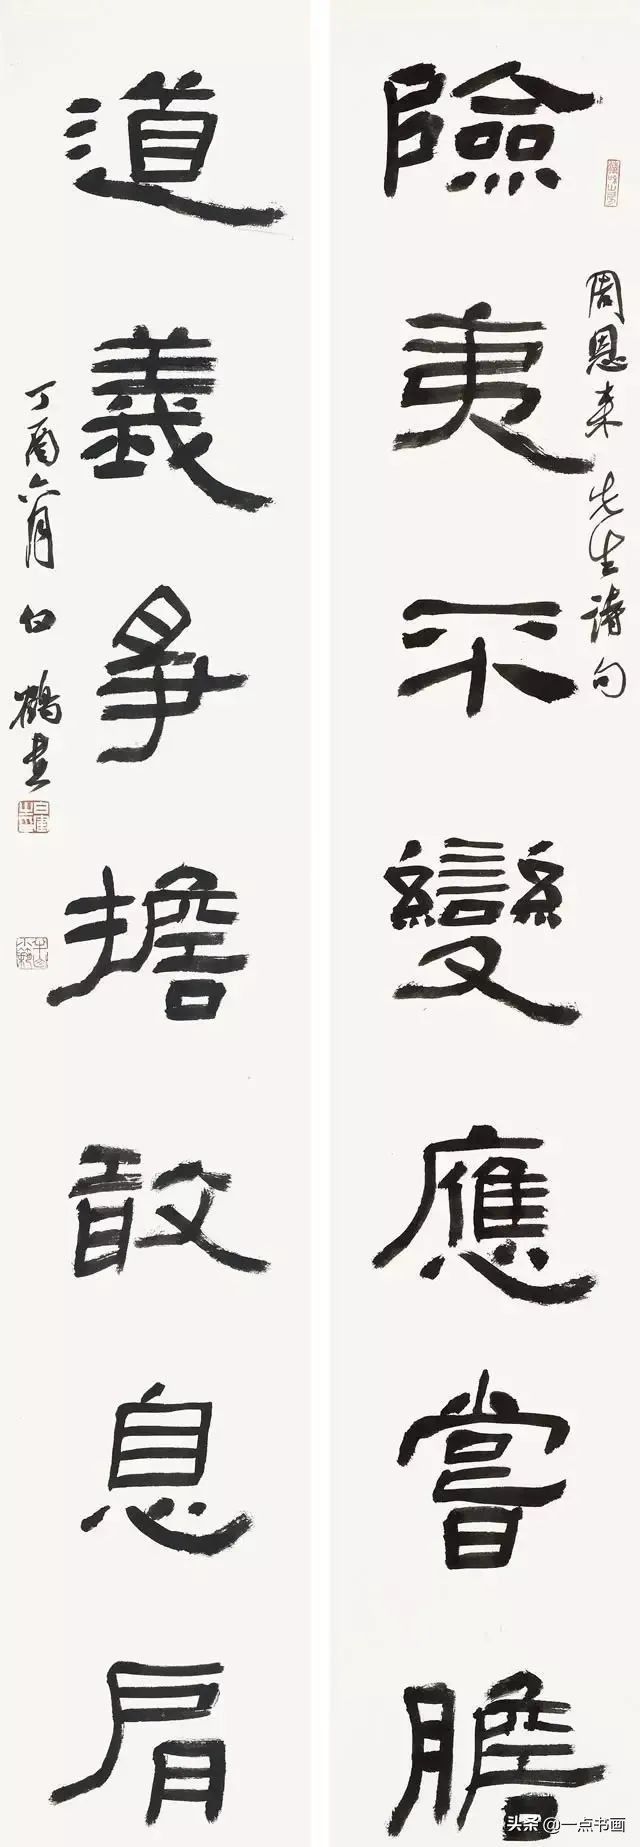 險夷不變應嘗膽
周恩来先生诗句
道義爭擔敢息肩
丁酉六月白鶴書
头条@一点书画